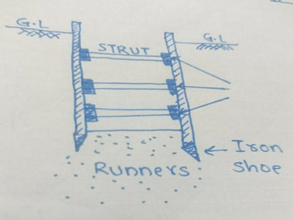 G.L
G.L
STRUT
Iron
Shoe
Runners